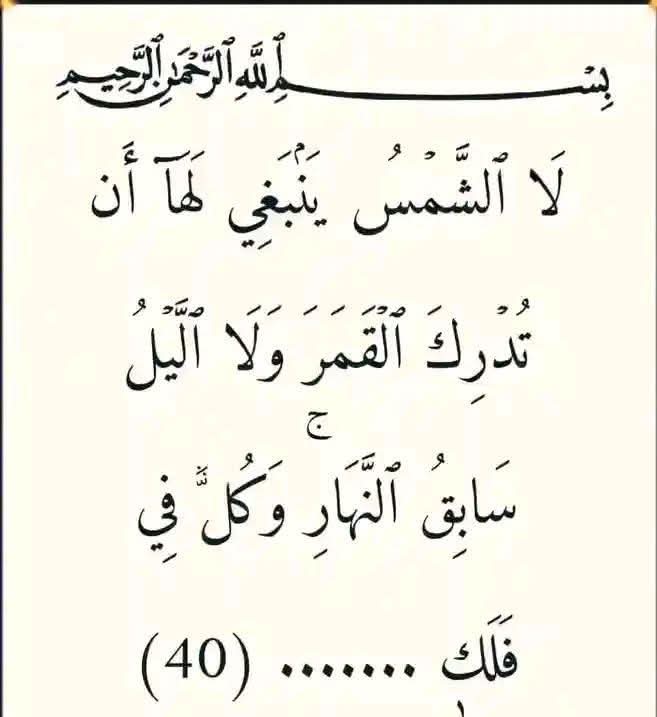 بِسْمِ ٱللَّهِ ٱلرَّحْمَٰنِ ٱلرَّحِيمِ
لَا ٱلشَّمْسُ يَنۢبَغِي لَهَآ أَن
تُدْرِكَ ٱلْقَمَرَ وَلَا ٱلَّيْلُ
سَابِقُ ٱلنَّهَارِ ۚ وَكُلٌّ فِي
فَلَكٍ ....... (40)